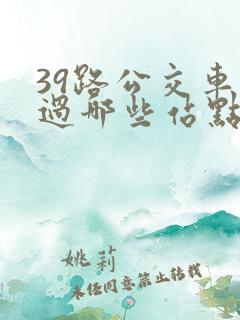 39路公交車
過哪些佔點
姚莉
未經同意禁止轉載